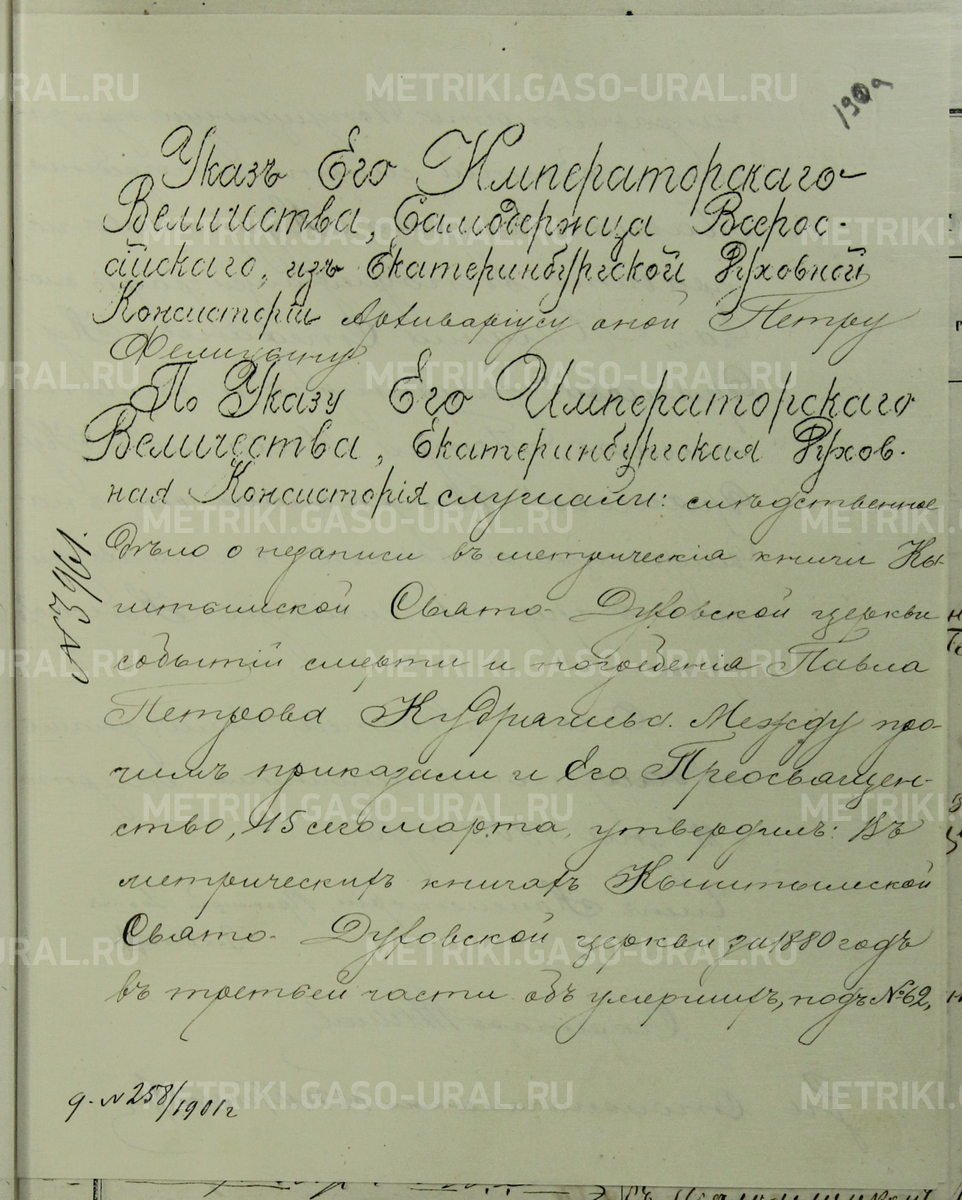 190а
Указъ Его Императорскаго
Величества, Самодержца Всерос-
сійскаго, изъ Екатеринбургской Духовной
Консисторіи Архиваріусу оной Петру
Фелицыну.
По Указу Его Императорскаго
Величества, Екатеринбургская Духов-
ная Консисторія слушали: слѣдственное
дѣло о незаписи въ метрическія книги Кы-
штымской Свято-Духовской церкви
событій смерти и погребенія Павла
Петрова Между про-
чимъ приказали и Его Преосвящен-
ство, 15 сего марта, утвердилъ: Въ
метрическихъ книгахъ Кыштымской
Свято-Духовской церкви за 1880 годъ
въ третьей части объ умершихъ, подъ №62,
№3961.
д. №258/1901г
METRIKI.GASO-URAL.RU